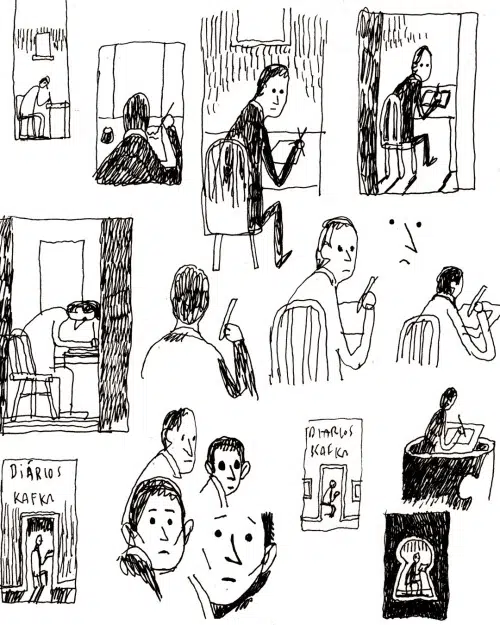 DIARIOS
KAFKA
DIÁRIOS
KAFKA